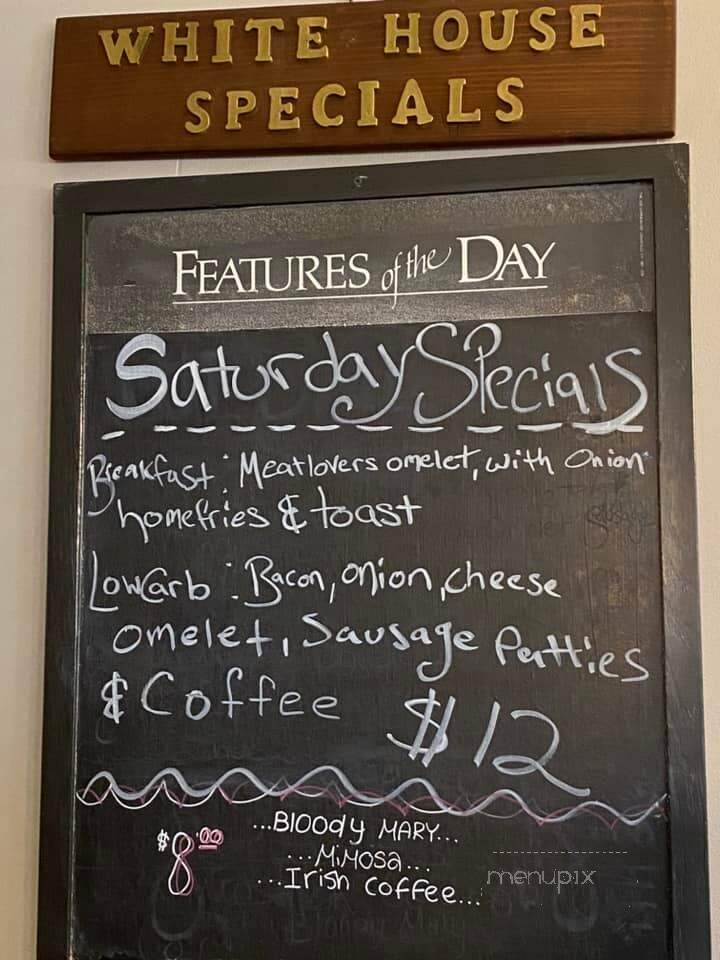 WHITE HOUSE
SPECIALS
FEATURES of the DAY
Saturday Specials
Breakfast: Meatlovers omelet, with Onion
homefries & toast
LowCarb: Bacon, onion, cheese
omelet, Sausage Patties
& Coffee $12
...BlOOdy MARY...
$8.00 ...MiMOSa...
...Irish Coffee...
menupix